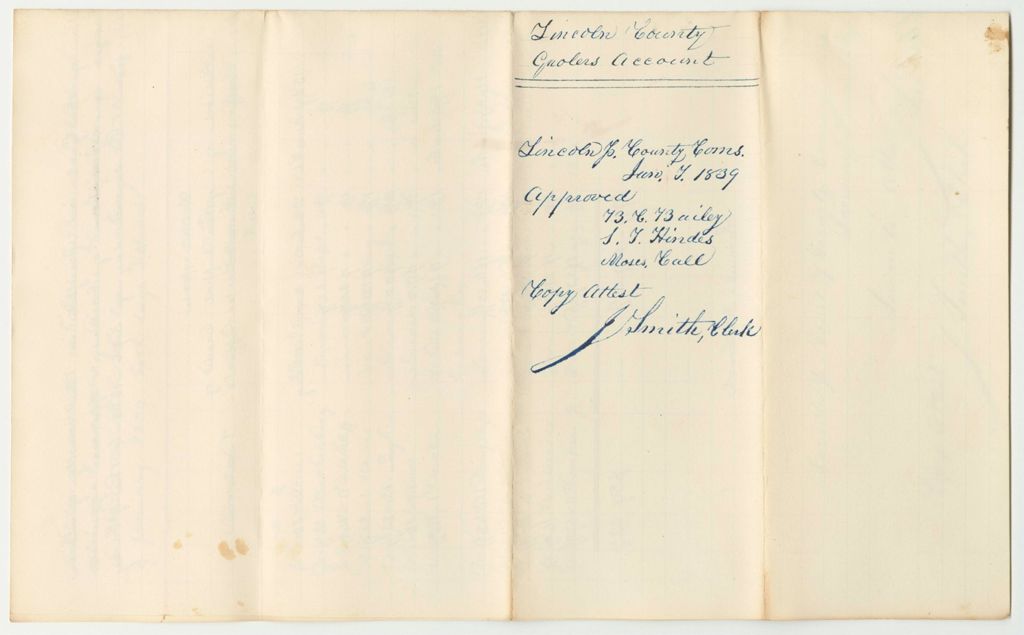 Lincoln County
Gaolers Account
Lincoln ss. County Coms.
Jan. T. 1839
Approved
B. C. Bailey
S. T. Hindes
Moses, Call
Copy Attest
J Smith, Clerk